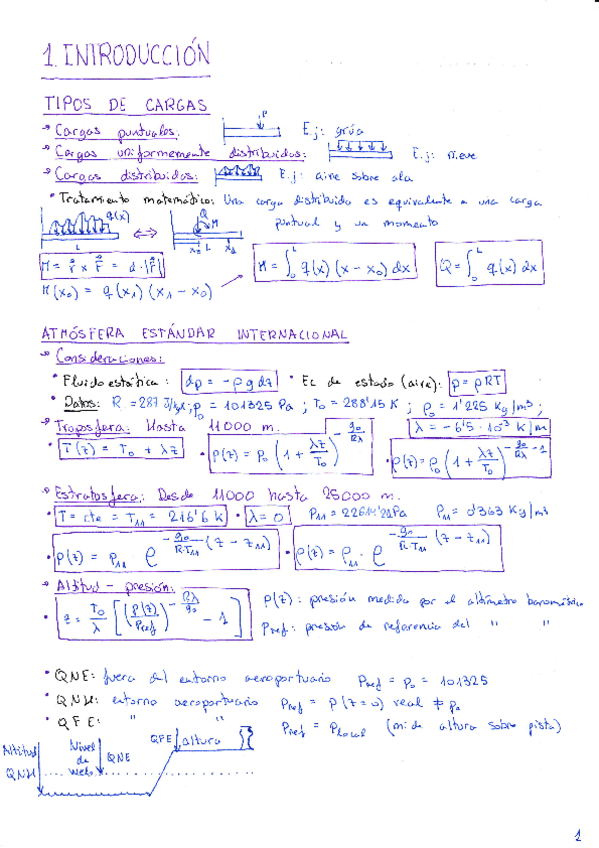 1. INTRODUCCIÓN
TIPOS DE CARGAS
→ Cargas puntuales: P E.j: grúa
→ Cargas uniformemente distribuidas: E.j: nieve
→ Cargas distribuidas: E.j: aire sobre ala
• Tratamiento matemático: Una carga distribuida es equivalente a una carga
puntual y un momento
q(x) L ⇔ Q M x₀ x₁ L
M = r⃗ x F⃗ = d·|F⃗|
M = ∫₀ᴸ q(x) (x - x₀) dx
Q = ∫₀ᴸ q(x) dx
M(x₀) = q(x₁) (x₁ - x₀)
ATMÓSFERA ESTÁNDAR INTERNACIONAL
→ Consideraciones:
• Fluidoestática: dp = -ρ g dz • Ec de estado (aire): p = ρRT
• Datos: R = 287 J/kgK; p₀ = 101325 Pa ; T₀ = 288'15 K ; ρ₀ = 1'225 Kg/m³ ;
→ Troposfera: Hasta 11000 m. λ = -6'5·10⁻³ K/m
• T(z) = T₀ + λz • p(z) = p₀ (1 + λz/T₀)^(-g₀/Rλ) • ρ(z) = ρ₀ (1 + λz/T₀)^(-g₀/Rλ - 1)
→ Estratosfera: Desde 11000 hasta 25000 m.
• T = cte = T₁₁ = 216'6 K • λ = 0 P₁₁ = 22614'21 Pa ρ₁₁ = 0'363 Kg/m³
• p(z) = p₁₁ · e^(-g₀/(R·T₁₁) (z - z₁₁)) • ρ(z) = ρ₁₁ · e^(-g₀/(R·T₁₁) (z - z₁₁))
→ Altitud - presión:
• z = T₀/λ [(p(z)/Pref)^(-Rλ/g₀) - 1]
p(z): presión medida por el altímetro barométrico
Pref: presión de referencia del " "
• QNE: fuera del entorno aeroportuario Pref = p₀ = 101325
• QNH: entorno aeroportuario Pref = p(z=0) real ≠ p₀
• QFE: " " Pref = Plocal (mide altura sobre pista)
Altitud QNH
Nivel de vuelo QNE
QFE altura
1